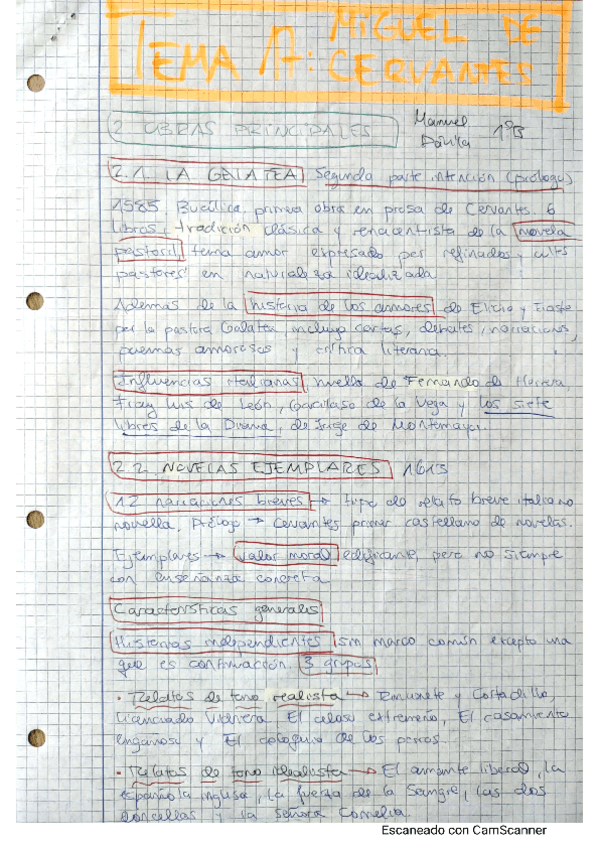 MIGUEL DE
TEMA 17: CERVANTES
2 OBRAS PRINCIPALES
Manuel
1ºB
2.1. LA GALATEA Segunda parte intención (prólogo)
1585. Bucólica, primera obra en prosa de Cervantes. 6
libros, tradición clásica y renacentista de la novela
pastoril, tema amor expresado por refinados y cultos
"pastores" en naturaleza idealizada.
Además de la historia de los amores de Elicio y
por la pastora Galatea, incluye cartas, debates, narraciones,
poemas amorosos y crítica literaria.
Influencias italianas, huella de Fernando de Herrera,
Fray Luis de León, Garcilaso de la Vega y los siete
libros de la Diana, de Jorge de Montemayor.
2.2. NOVELAS EJEMPLARES 1613
12 narraciones breves → tipo de relato breve italiano
novella. Prólogo → Cervantes primer castellano de novelas.
Ejemplares → valor moral edificante, pero no siempre
con enseñanza concreta
Características generales
Historias independientes sin marco común excepto una
que es continuación. 3 grupos
· Relatos de tono realista → Rinconete y Cortadillo,
Licenciado Vidriera, El celoso extremeño, El casamiento
engañoso y El coloquio de los perros.
· Relatos de tono idealista → El amante liberal, la
española inglesa, La fuerza de la sangre, las dos
doncellas y la señora Cornelia.
Escaneado con CamScanner